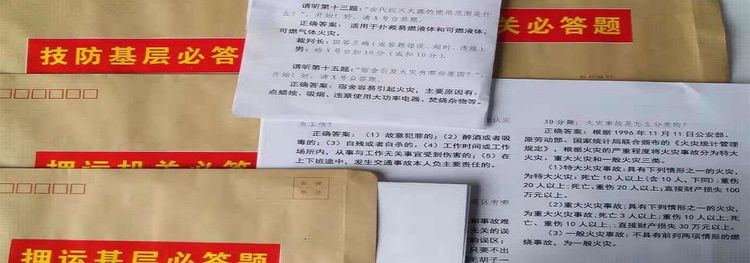 技防基层必答题
押运机关必答
押运基层必答题
关必答题
请听第十三题:“卤代烷灭火器的使用范围是什
么?”,开始!好,请X号台答题。
正确答案:适用于扑救易燃液体和可燃液体、
可燃气体火灾。
裁判长:回答正确(或答题错误、超时、违规),
男:给X号台加10分(或扣10分)。
请听第十五题:“宿舍引发火灾有哪些原因?”,
开始!好,请X号台答题。
正确答案:宿舍容易引起火灾,主要原因有:
点蜡烛、吸烟、违章使用大功率电器、焚烧杂物等。
为工伤?
正确答案:(1)故意犯罪的;(2)醉酒或者吸
毒的;(3)自残或者自杀的。(4)工作时间或工作
场所内,从事与工作无关事宜受到伤害的;(5)在
上下班途中,发生交通事故本人负主要责任的。
30分题:火灾事故是怎么分类的?
正确答案:根据1996年11月11日公安部、
原劳动部、国家统计局联合颁布的《火灾统计管理
规定》,根据火灾的严重程度将火灾事故分为特大
火灾、重大火灾和一般火灾三类。
(1)特大火灾事故:具有下列情形之一的火灾,
为特大火灾:死亡10人以上(含10人,下同);重伤
20人以上;死亡、重伤20人以上;直接财产损失100
万元以上。
(2)重大火灾事故:具有下列情形之一的火灾,
为重大火灾事故:死亡3人以上;重伤10人以上;死
亡、重伤10人以上;直接财产损失30万元以上。
(3)一般火灾事故:不具有前列两项情形的燃
烧事故,为一般火灾。
和事故难
关的误
的误区;
只要不出